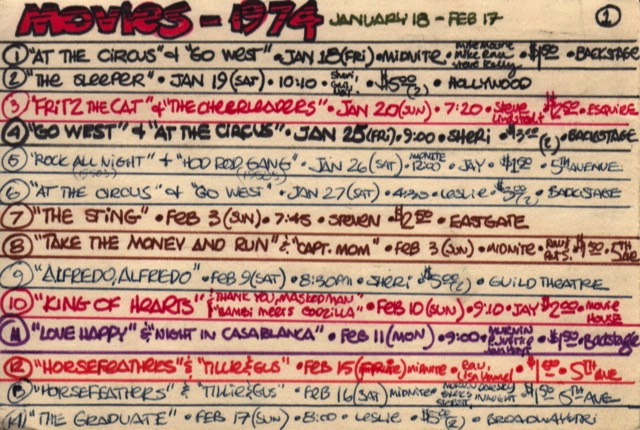 MOVIES - 1974 JANUARY 18 - FEB 17 1
1 "AT THE CIRCUS" & "GO WEST" • JAN 18 (FRI) • MIDNITE • $1.00 • BACKSTAGE
2 "THE SLEEPER" • JAN 19 (SAT) • 10:10 • SHERI, • $5.00 (2) • HOLLYWOOD
3 "FRITZ THE CAT" & "THE CHEERLEADERS" • JAN 20 (SUN) • 7:20 • STEVE • $2.50 • ESQUIRE
4 "GO WEST" & "AT THE CIRCUS" • JAN 25 (FRI) • 9:00 • SHERI • $3.00 (2) • BACKSTAGE
5 "ROCK ALL NIGHT" & "HOD ROD GANG" • JAN 26 (SAT) • MIDNITE 12:00 • JAY • $1.50 • 5TH AVENUE
6 "AT THE CIRCUS" & "GO WEST" • JAN 27 (SAT) • 4:30 • LESLIE • (2) • BACKSTAGE
7 "THE STING" • FEB 3 (SUN) • 7:45 • STEVEN • $2.50 • EASTGATE
8 "TAKE THE MONEY AND RUN" & "CAPT. MOM" • FEB 3 (SUN) • MIDNITE • • 5TH AVE
9 "ALFREDO, ALFREDO" • FEB 9 (SAT) • 8:30PM • SHERI • $5.00 (2) • GUILD THEATRE
10 "KING OF HEARTS" & "THANK YOU, MASKED MAN" "BAMBI MEETS GODZILLA" • FEB 10 (SUN) • 9:10 • JAY • $2.00 • MOVIE HOUSE
11 "LOVE HAPPY" & "NIGHT IN CASABLANCA" • FEB 11 (MON) • 9:00 • • BACKSTAGE
12 "HORSEFEATHERS" & "TILLIE & GUS" • FEB 15 (FRI) MIDNITE • • 5TH AVE
13 "HORSEFEATHERS" & "TILLIE & GUS" • FEB 16 (SAT) MIDNITE • • 5TH AVE
14 "THE GRADUATE" • FEB 17 (SUN) • 8:00 • LESLIE • (2) •